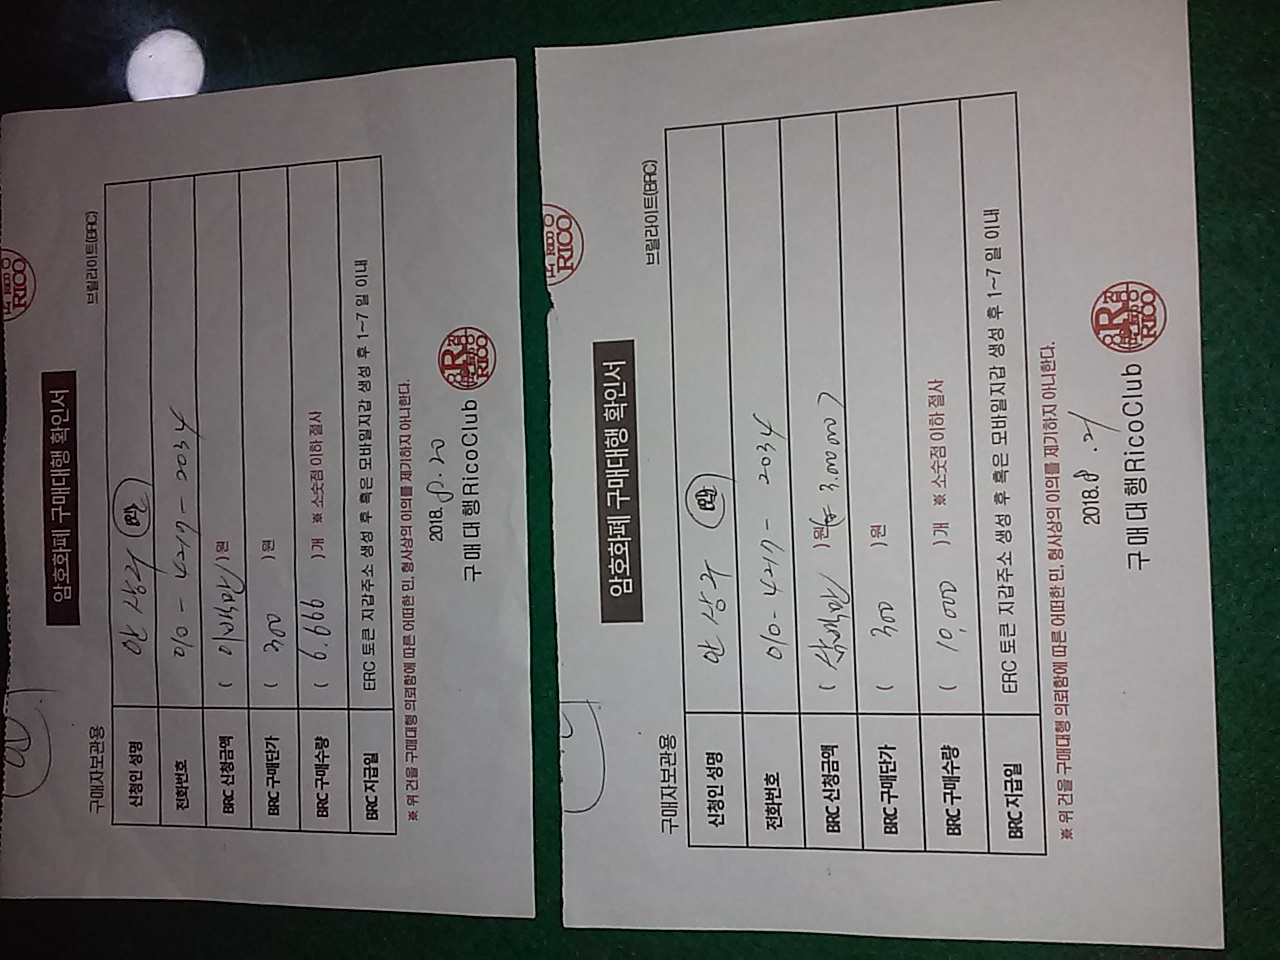 암호화폐 구매대행 확인서
구매자보관용 브릴라이트(BRC)
신청인 성명 안상수
전화번호 010-4217-2034
BRC 신청금액 ( 이백만 )원
BRC 구매단가 ( 300 )원
BRC 구매수량 ( 6,666 )개 ※ 소숫점 이하 절사
BRC 지급일 ERC 토큰 지갑주소 생성 후 혹은 모바일지갑 생성 후 1~7 일 이내
※ 위 건을 구매대행 의뢰함에 따른 어떠한 민, 형사상의 이의를 제기하지 아니한다.
2018. 8. 20
구매대행RicoClub
RICO
RICO
암호화폐 구매대행 확인서
구매자보관용 브릴라이트(BRC)
신청인 성명 안상수
전화번호 010-4217-2034
BRC 신청금액 ( 삼백만 )원 (₩ 3.000.000)
BRC 구매단가 ( 300 )원
BRC 구매수량 ( 10,000 )개 ※ 소숫점 이하 절사
BRC 지급일 ERC 토큰 지갑주소 생성 후 혹은 모바일지갑 생성 후 1~7 일 이내
※ 위 건을 구매대행 의뢰함에 따른 어떠한 민, 형사상의 이의를 제기하지 아니한다.
2018. 8. 21
구매대행RicoClub
RICO
RICO